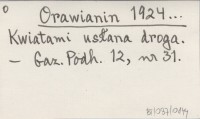 Orawianin 1924...
Kwiatami usłana droga.
– Gaz. Podh. 12, nr 31.